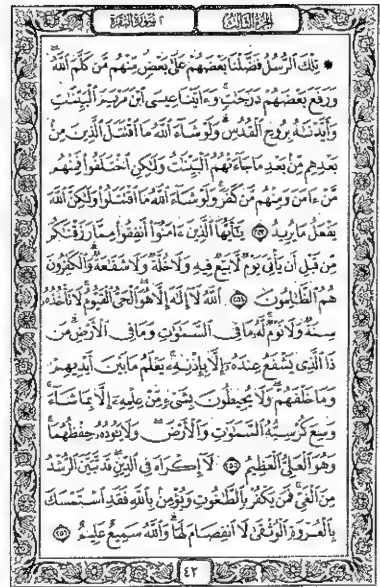 الجزء الثالث
٢ سورة البقرة
۞ تِلْكَ ٱلرُّسُلُ فَضَّلْنَا بَعْضَهُمْ عَلَىٰ بَعْضٍۘ مِّنْهُم مَّن كَلَّمَ ٱللَّهُۖ
وَرَفَعَ بَعْضَهُمْ دَرَجَٰتٍۚ وَءَاتَيْنَا عِيسَى ٱبْنَ مَرْيَمَ ٱلْبَيِّنَٰتِ
وَأَيَّدْنَٰهُ بِرُوحِ ٱلْقُدُسِۗ وَلَوْ شَآءَ ٱللَّهُ مَا ٱقْتَتَلَ ٱلَّذِينَ مِنۢ
بَعْدِهِم مِّنۢ بَعْدِ مَا جَآءَتْهُمُ ٱلْبَيِّنَٰتُ وَلَٰكِنِ ٱخْتَلَفُوا۟ فَمِنْهُم
مَّنْ ءَامَنَ وَمِنْهُم مَّن كَفَرَۚ وَلَوْ شَآءَ ٱللَّهُ مَا ٱقْتَتَلُوا۟ وَلَٰكِنَّ ٱللَّهَ
يَفْعَلُ مَا يُرِيدُ ٢٥٣ يَٰٓأَيُّهَا ٱلَّذِينَ ءَامَنُوٓا۟ أَنفِقُوا۟ مِمَّا رَزَقْنَٰكُم
مِّن قَبْلِ أَن يَأْتِىَ يَوْمٌ لَّا بَيْعٌ فِيهِ وَلَا خُلَّةٌ وَلَا شَفَٰعَةٌۗ وَٱلْكَٰفِرُونَ
هُمُ ٱلظَّٰلِمُونَ ٢٥٤ ٱللَّهُ لَآ إِلَٰهَ إِلَّا هُوَ ٱلْحَىُّ ٱلْقَيُّومُۚ لَا تَأْخُذُهُۥ
سِنَةٌ وَلَا نَوْمٌۚ لَّهُۥ مَا فِى ٱلسَّمَٰوَٰتِ وَمَا فِى ٱلْأَرْضِۗ مَن
ذَا ٱلَّذِى يَشْفَعُ عِندَهُۥٓ إِلَّا بِإِذْنِهِۦۚ يَعْلَمُ مَا بَيْنَ أَيْدِيهِمْ
وَمَا خَلْفَهُمْۖ وَلَا يُحِيطُونَ بِشَىْءٍ مِّنْ عِلْمِهِۦٓ إِلَّا بِمَا شَآءَۚ
وَسِعَ كُرْسِيُّهُ ٱلسَّمَٰوَٰتِ وَٱلْأَرْضَۖ وَلَا يَـُٔودُهُۥ حِفْظُهُمَاۚ
وَهُوَ ٱلْعَلِىُّ ٱلْعَظِيمُ ٢٥٥ لَآ إِكْرَاهَ فِى ٱلدِّينِۖ قَد تَّبَيَّنَ ٱلرُّشْدُ
مِنَ ٱلْغَىِّۚ فَمَن يَكْفُرْ بِٱلطَّٰغُوتِ وَيُؤْمِنۢ بِٱللَّهِ فَقَدِ ٱسْتَمْسَكَ
بِٱلْعُرْوَةِ ٱلْوُثْقَىٰ لَا ٱنفِصَامَ لَهَاۗ وَٱللَّهُ سَمِيعٌ عَلِيمٌ ٢٥٦
٤٢